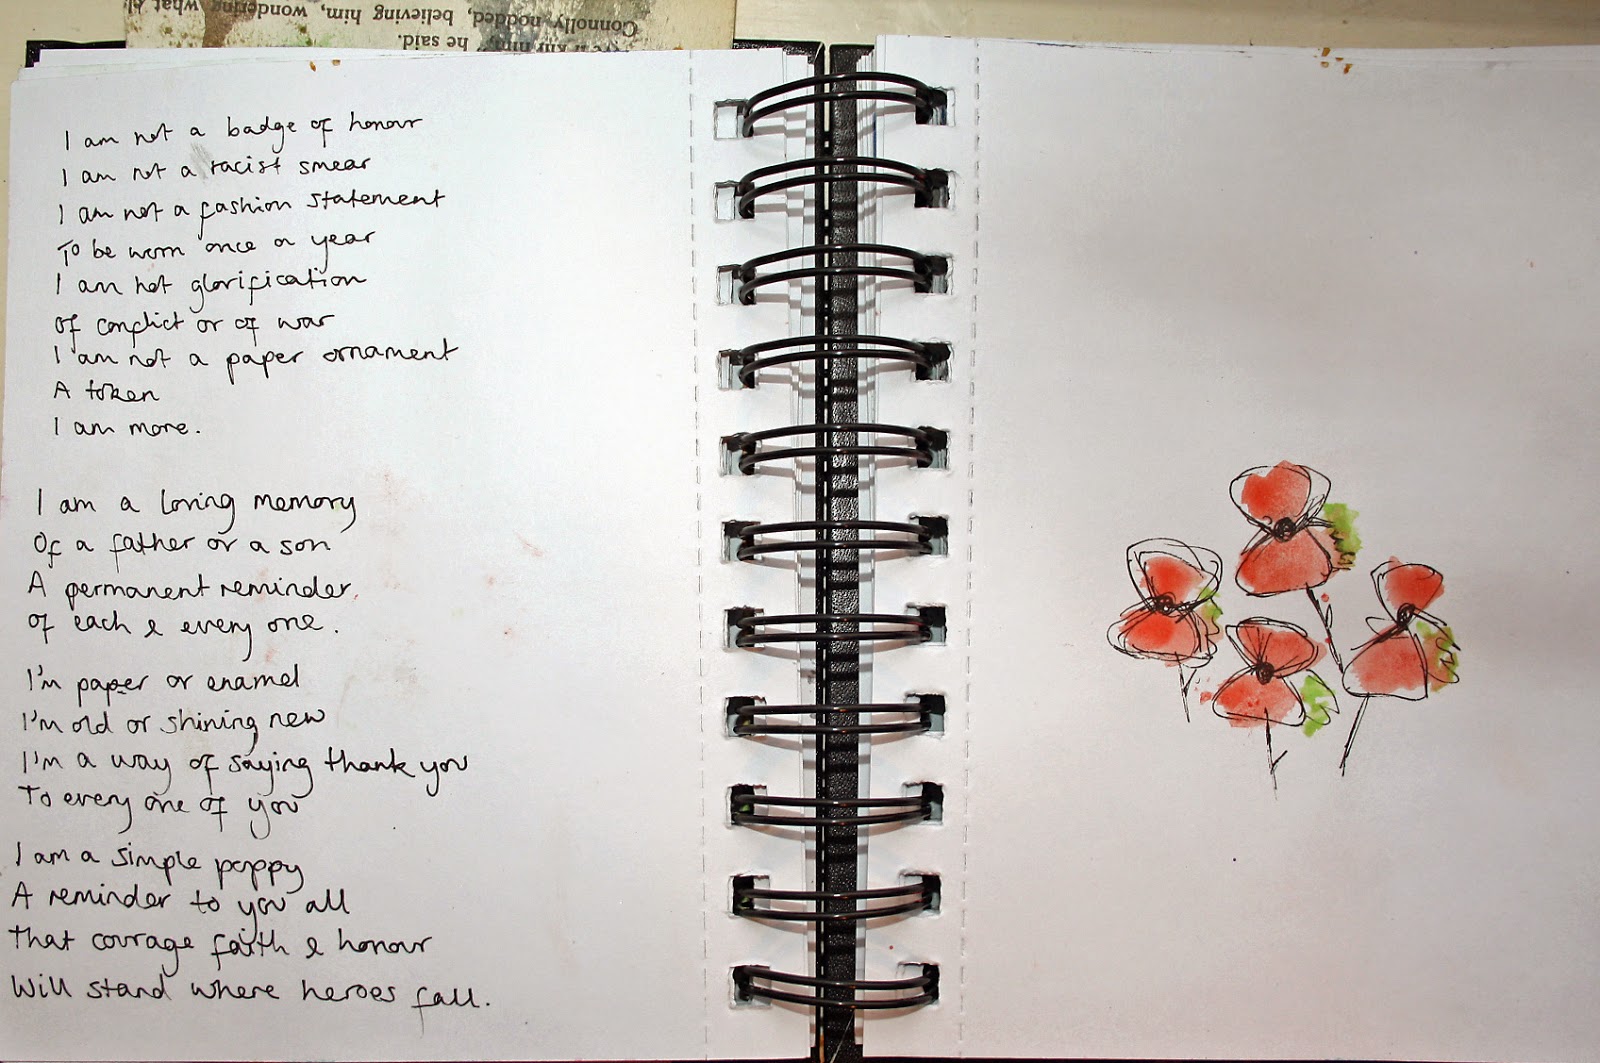 Connolly nodded, believing him, wondering what
he said.
I am not a badge of honour
I am not a racist smear
I am not a fashion statement
To be worn once a year
I am not glorification
Of conflict or of war
I am not a paper ornament
A token
I am more.
I am a loving memory
Of a father or a son
A permanent reminder
Of each & every one.
I'm paper or enamel
I'm old or shining new
I'm a way of saying thank you
To every one of you
I am a simple poppy
A reminder to you all
That courage faith & honour
Will stand where heroes fall.